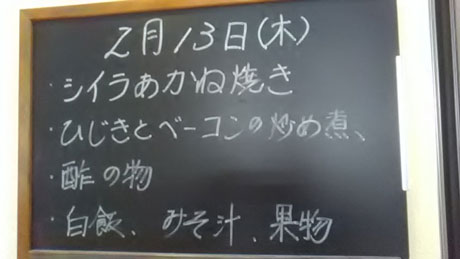 2月13日(木)
・シイラあかね焼き
・ひじきとベーコンの炒め煮、
・酢の物
・白飯、みそ汁、果物